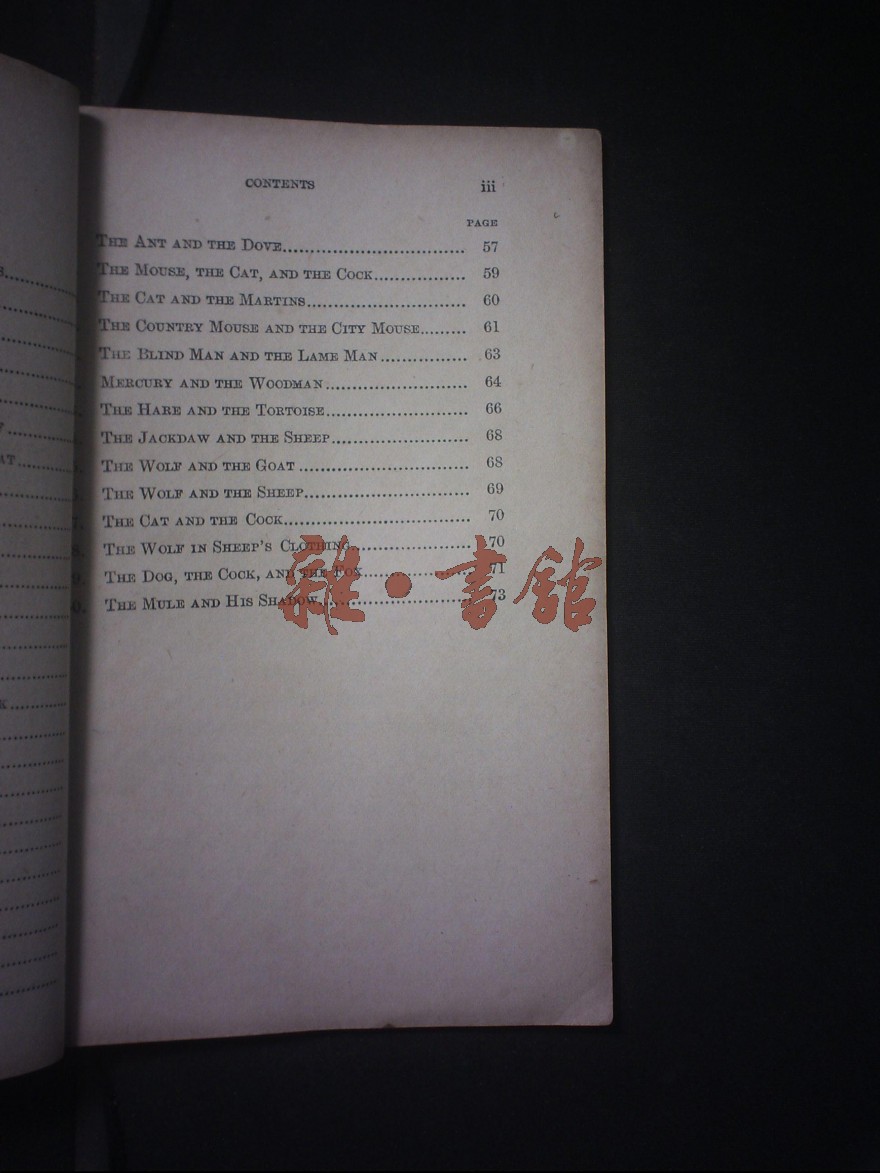 CONTENTS iii
PAGE
THE ANT AND THE DOVE.................................... 57
THE MOUSE, THE CAT, AND THE COCK................ 59
THE CAT AND THE MARTINS................................ 60
THE COUNTRY MOUSE AND THE CITY MOUSE......... 61
THE BLIND MAN AND THE LAME MAN................ 63
MERCURY AND THE WOODMAN............................ 64
THE HARE AND THE TORTOISE............................ 66
THE JACKDAW AND THE SHEEP........................... 68
THE WOLF AND THE GOAT.................................. 68
THE WOLF AND THE SHEEP................................. 69
7. THE CAT AND THE COCK..................................... 70
8. THE WOLF IN SHEEP'S CLOTHING........................ 70
9. THE DOG, THE COCK, AND THE FOX..................... 71
0. THE MULE AND HIS SHADOW.............................. 73
雜·書館